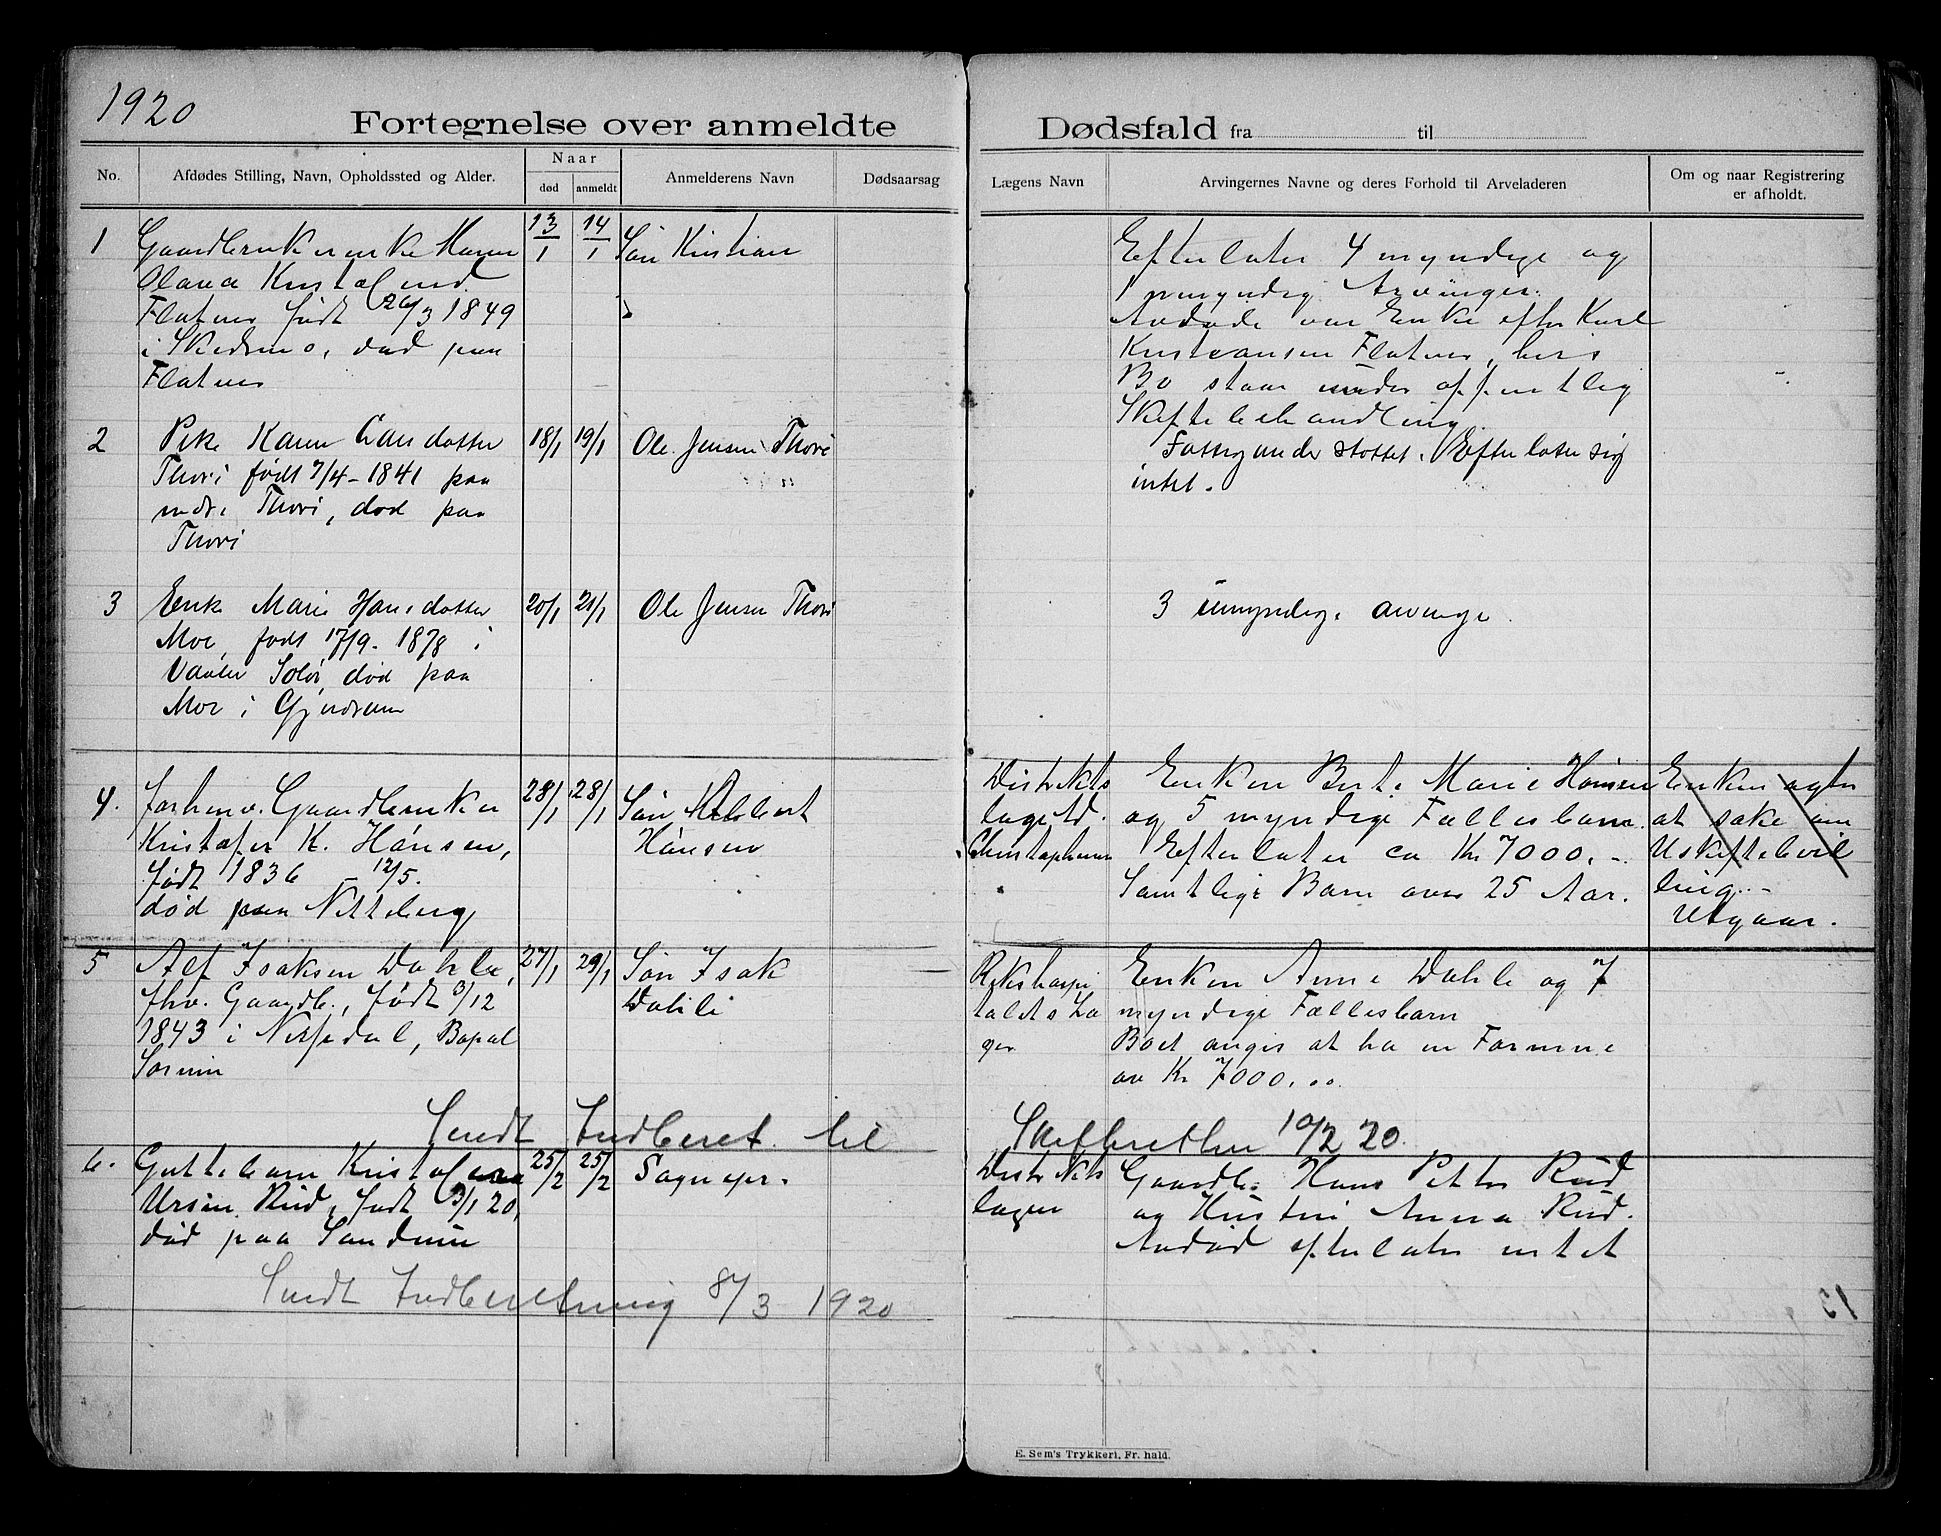 1920
Fortegnelse over anmeldte Dødsfald fra til
No.
Afdødes Stilling, Navn, Opholdssted og Alder.
Naar
død
anmeldt
Anmelderens Navn
Dødsaarsag
Lægens Navn
Arvingernes Navne og deres Forhold til Arveladeren
Om og naar Registrering
er afholdt.
1
Gaardbrukerenke Karen
Olava
Flatner født 26/3 1849
i Skedsmo, død paa
Flatner
13/1
14/1
Søn Kristian
Efterlater 4 myndige og
1 umyndig Arvinger.
Avdøde var Enke efter Karl
Kristiansen Flatner, hvis
Bo staar under offentlig
Skiftebehandling
2
Pike Karen Larsdatter
Thori født 7/4 - 1841 paa
nedre Thori, død paa
Thori
18/1
19/1
Ole Jensen Thori
Fattigunderstøttet. Efterlater sig
intet.
3
Enke Marie Hansdatter
Moe, født 17/9. 1878 i
Vaaler Solør, død paa
Moe i Gjerdrum
20/1
21/1
Ole Jensen Thori
3 umyndige arvinge
4.
forhenv. Gaardbruker
Kristofer K. Hønsen,
født 1836 12/5.
død paa Nitteberg
28/1
28/1
Søn
Hønsen
Distrikts
læge Ad.
Christophersen
Enken Berte Marie Hønsen
og 5 myndige Fællesbarn.
Efterlater ca Kr 7000. -
Samtlige Barn over 25 Aar.
Enken agter
at søke om
Uskiftebevil
ling. -
Utgaar.
5
Alf Isaksen Dahle,
fhv. Gaardb., født 3/12
1843 i Nissedal, Bopæl
27/1
29/1
Søn Isak
Dahle
Rikshospi
talets Læ
ger
Enken Anne Dahle og 7
myndige Fællesbarn
Boet angis at ha en Formue
av Kr 7000.00.
Sendt Indberet. til Skifteretten 10/2 20.
6.
Guttebarn Kristofer
Ursin Rud, født 3/1 20,
død paa
25/2
25/2
Sognepr.
Distrikts
lægen
Gaardb. Hans Petter Rud
og Kristine Anna Rud.
Avdød efterlater intet
Sendt Indberetning 8/3 1920
13
E. Sem's Trykkeri, Fr. hald.